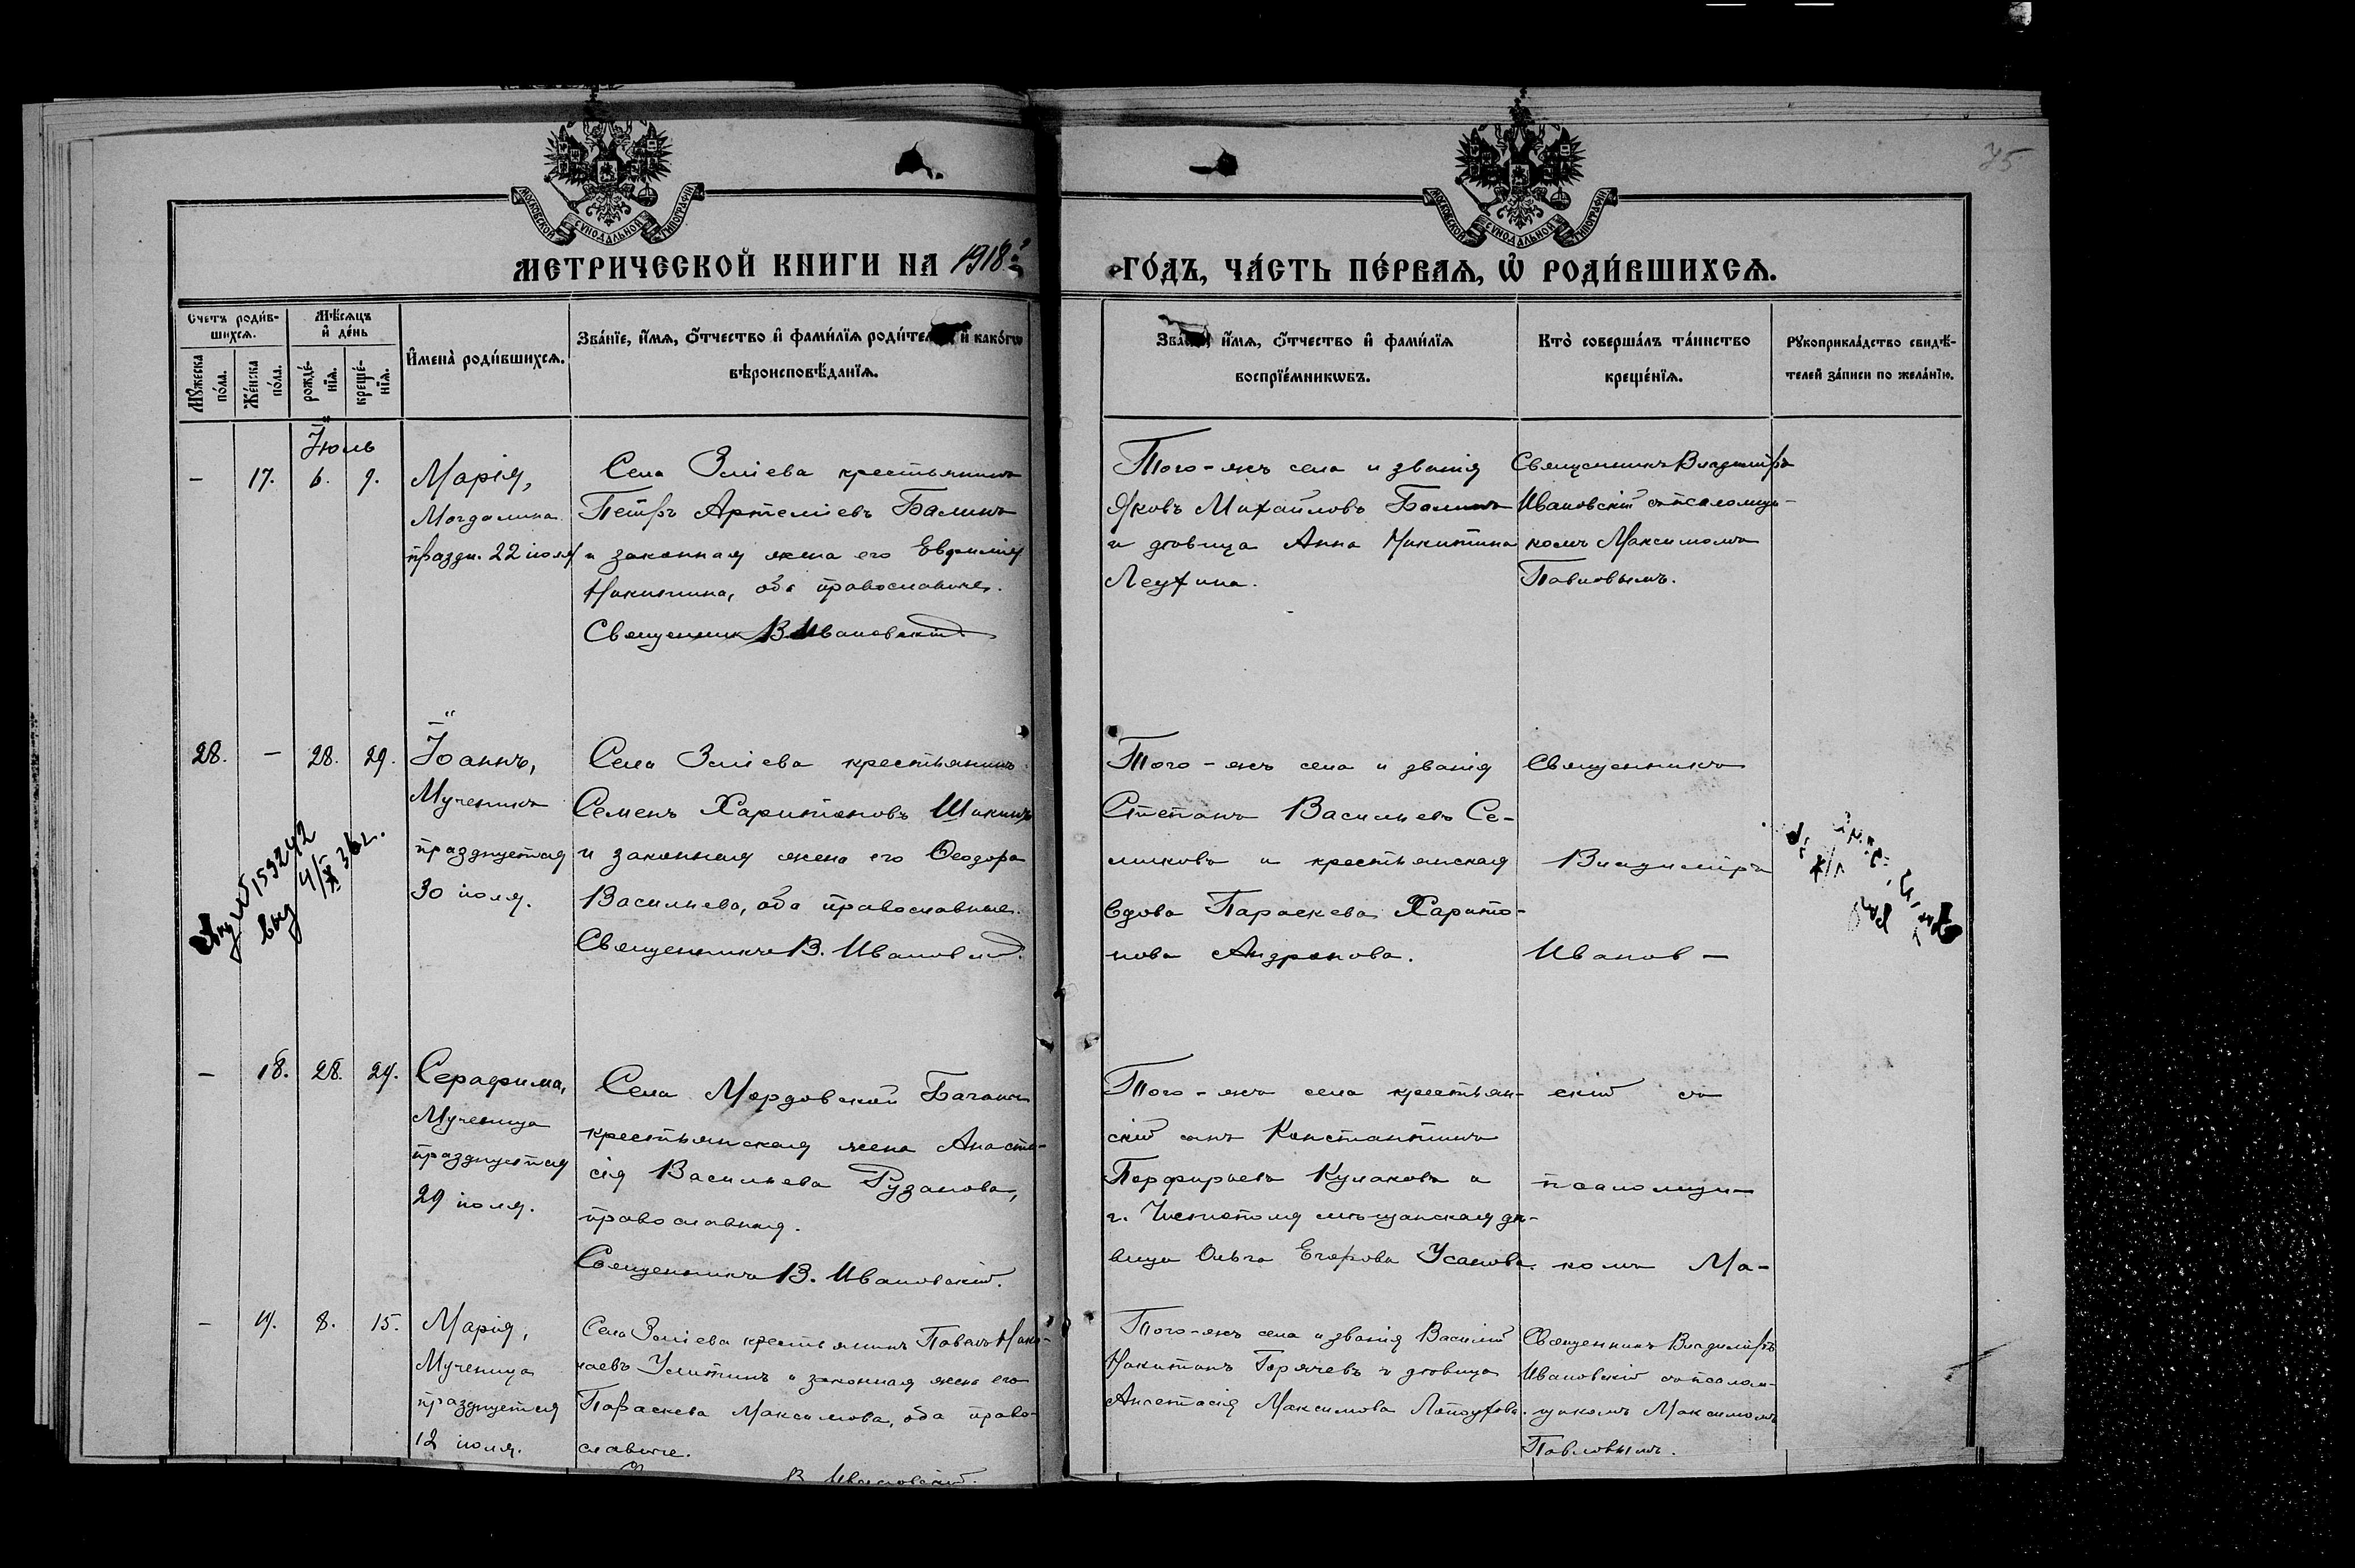 75
МОСКОВСКОЙ СѴНОДАЛЬНОЙ ТИПОГРАФІИ
МОСКОВСКОЙ СѴНОДАЛЬНОЙ ТИПОГРАФІИ
МЕТРИЧЕСКОЙ КНИГИ НА 1918 й
ГО́ДЪ, ЧА́СТЬ ПЕ́РВАЯ, Ѡ҆ РОДИ́ВШИХСЯ.
Счетъ роди́в-
шихся.
Мѣ́сяцъ
и҆ де́нь
Мꙋ́жеска
по́ла.
Же́нска
по́ла.
рожде́-
нїя.
креще́-
нїя.
И҆мена̀ роди́вшихся.
Зва́нїе, и҆́мя, ѻ҆́тчество и҆ фами́лїя роди́тел и҆ како́гѡ
вѣроисповѣ́данїя.
Зва и҆́мя, ѻ҆́тчество и҆ фами́лїя
воспрїе́мникѡвъ.
Кто̀ соверша́лъ та́инство
креще́нїя.
Рꙋкоприкла́дство свидѣ́-
телей за́писи по жела́нїю.
Іюль
– 17. 6. 9.
Марія,
Магдалина
праздн. 22 іюля
Села Зміева крестьянинъ
Петръ Артеміевъ Балинъ
и законная жена его Евдокимія
Никитина, оба православные.
Священник В. Ивановскій
Того-жъ села и званія
Яковъ Михайловъ Балинъ
и дѣвица Анна Никитина
Леухина.
Священникъ Владиміръ
Ивановскій съ псаломщи-
комъ Максимомъ
Павловымъ.
28. – 28. 29.
Іоаннъ,
Мученикъ
празднуется
30 іюля.
Села Зміева крестьянинъ
Семенъ Харитоновъ Шикинъ
и законная жена его Ѳеодора
Васильева, оба православные.
Священникъ В. Ивановскій.
Того-жъ села и званія
Степанъ Васильевъ Се-
миковъ и крестьянская
вдова Параскева Харито-
нова Андронова.
Священникъ
Владиміръ
Иванов-
159242
выд 4/X 36г.
– 18. 28. 29.
Серафима,
Мученица
празднуется
29 іюля.
Села Мордовской Баганы
крестьянская жена Анаста-
сія Васильева Рузанова,
православная.
Священникъ В. Ивановскій.
Того-жъ села крестьян-
скій сынъ Константинъ
Порфирьевъ Кулаковъ и
г. Чистополя мѣщанская дѣ-
вица Ольга Егорова Усанова.
скій съ
псаломщи-
комъ Ма-
– 19. 8. 15.
Марія,
Мученица
празднуется
12 іюля.
Села Зміева крестьянинъ Павелъ Нико-
лаевъ Улитинъ и законная жена его
Параскева Максимова, оба право-
славные.
В. Ивановскій.
Того-жъ села и званія Василій
Никитинъ Горячевъ и дѣвица
Анастасія Максимова
Священникъ Владиміръ
Ивановскій съ псалом-
щикомъ Максимомъ
Павловымъ.